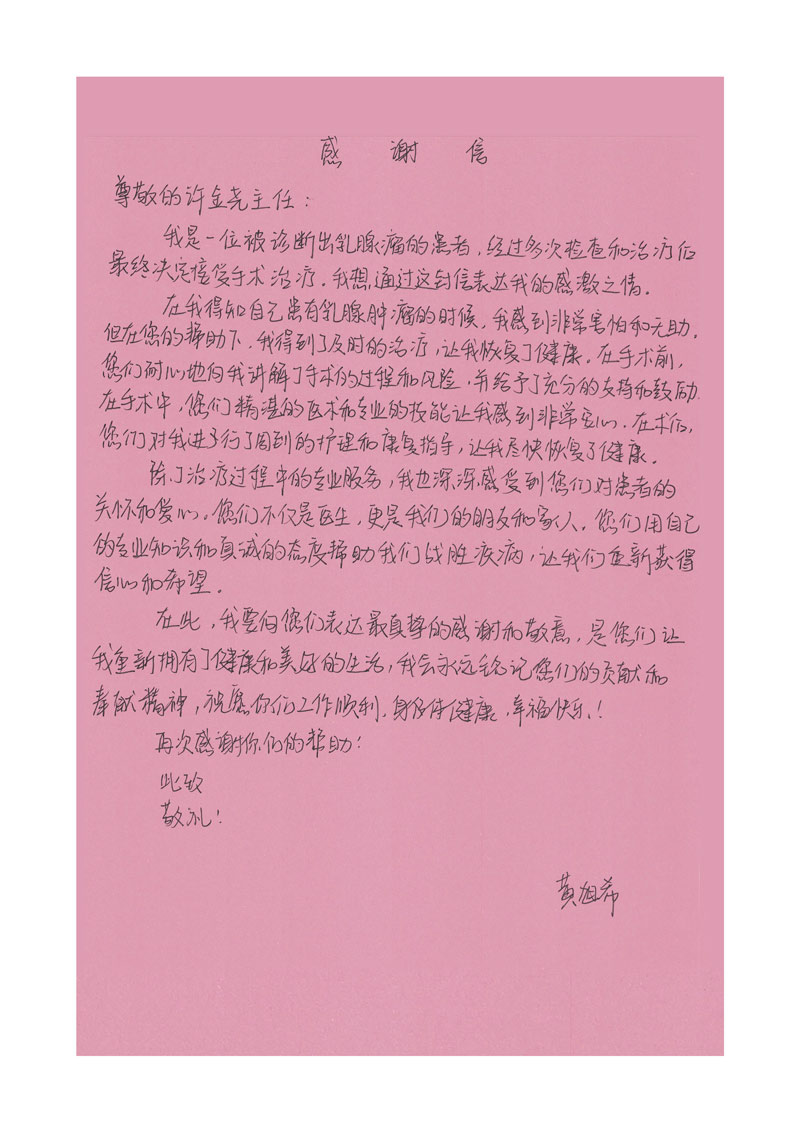 感谢信
尊敬的许金尧主任：
我是一位被诊断出乳腺瘤的患者，经过多次检查和治疗后
最终决定接受手术治疗。我想通过这封信表达我的感激之情。
在我得知自己患有乳腺肿瘤的时候，我感到非常害怕和无助。
但在您的帮助下，我得到了及时的治疗，让我恢复了健康。在手术前，
您们耐心地向我讲解了手术的过程和风险，并给予了充分的支持和鼓励。
在手术中，您们精湛的医术和专业的技能让我感到非常安心。在术后，
您们对我进行了周到的护理和康复指导，让我尽快恢复了健康。
除了治疗过程中的专业服务，我也深深感受到您们对患者的
关怀和爱心。您们不仅是医生，更是我们的朋友和家人。您们用自己
的专业知识和真诚的态度帮助我们战胜疾病，让我们重新获得
信心和希望。
在此，我要向您们表达最真挚的感谢和敬意，是您们让
我重新拥有了健康和美好的生活，我会永远铭记您们的贡献和
奉献精神，祝愿你们工作顺利，身体健康，幸福快乐！
再次感谢你们的帮助！
此致
敬礼！
黄旭希